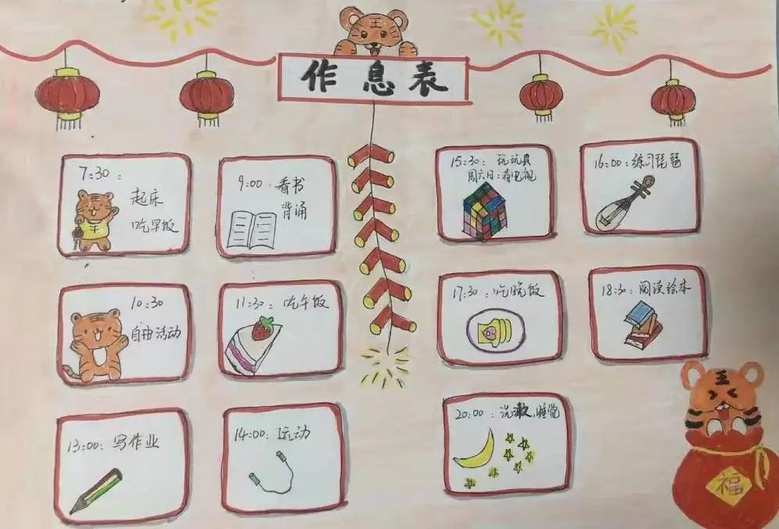 王
作息表
7:30:
起床
吃早饭
9:00: 看书
背诵
10:30
自由活动
11:30: 吃午饭
13:00: 写作业
14:00: 运动
15:30: 玩玩具
周六日: 看电视
16:00: 练习琵琶
17:30: 吃晚饭
18:30: 阅读绘本
20:00: 洗漱,睡觉
王
福